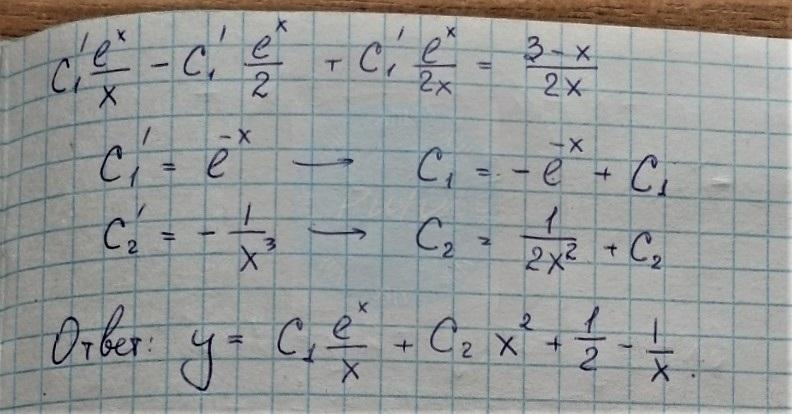 C₁' eˣ/x − C₁' eˣ/2 + C₁' eˣ/2x = (3−x)/2x
C₁' = e⁻ˣ → C₁ = −e⁻ˣ + C₁
C₂' = −1/x³ → C₂ = 1/2x² + C₂
Ответ: y = C₁ eˣ/x + C₂ x² + 1/2 − 1/x.